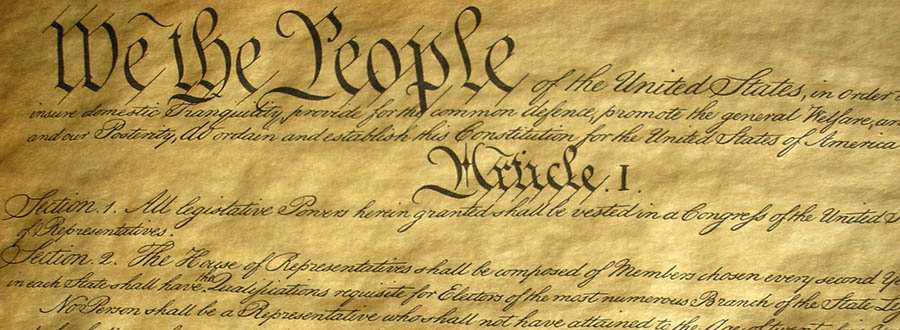 We the People of the United States, in order
insure domestic Tranquility, provide for the common defence, promote the general Welfare, an
and our Posterity, do ordain and establish this Constitution for the United States of America
Article. I.
Section. 1. All legislative Powers herein granted shall be vested in a Congress of the United S
of Representatives.
Section. 2. The House of Representatives shall be composed of Members chosen every second Ye
in each State shall have the Qualifications requisite for Electors of the most numerous Branch of the State Leg
No Person shall be a Representative who shall not have attained to the Age of twenty